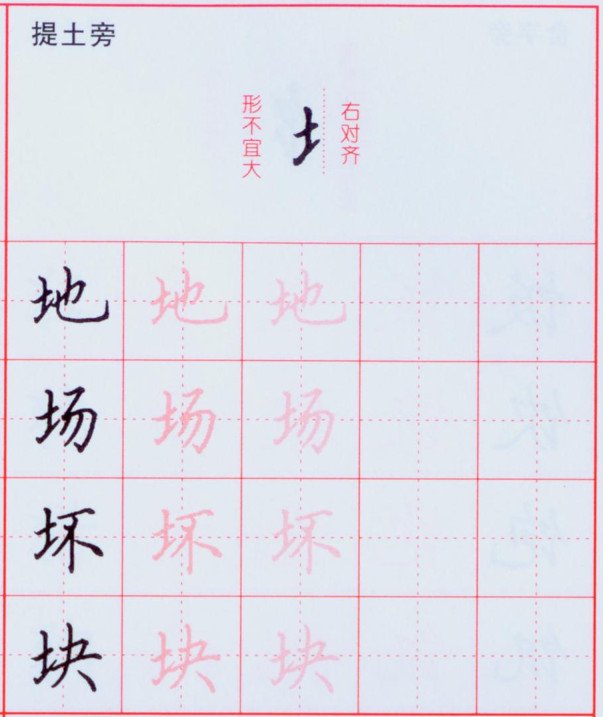 提土旁
形不宜大
土
右对齐
地 地 地
场 场 场
坏 坏 坏
块 块 块